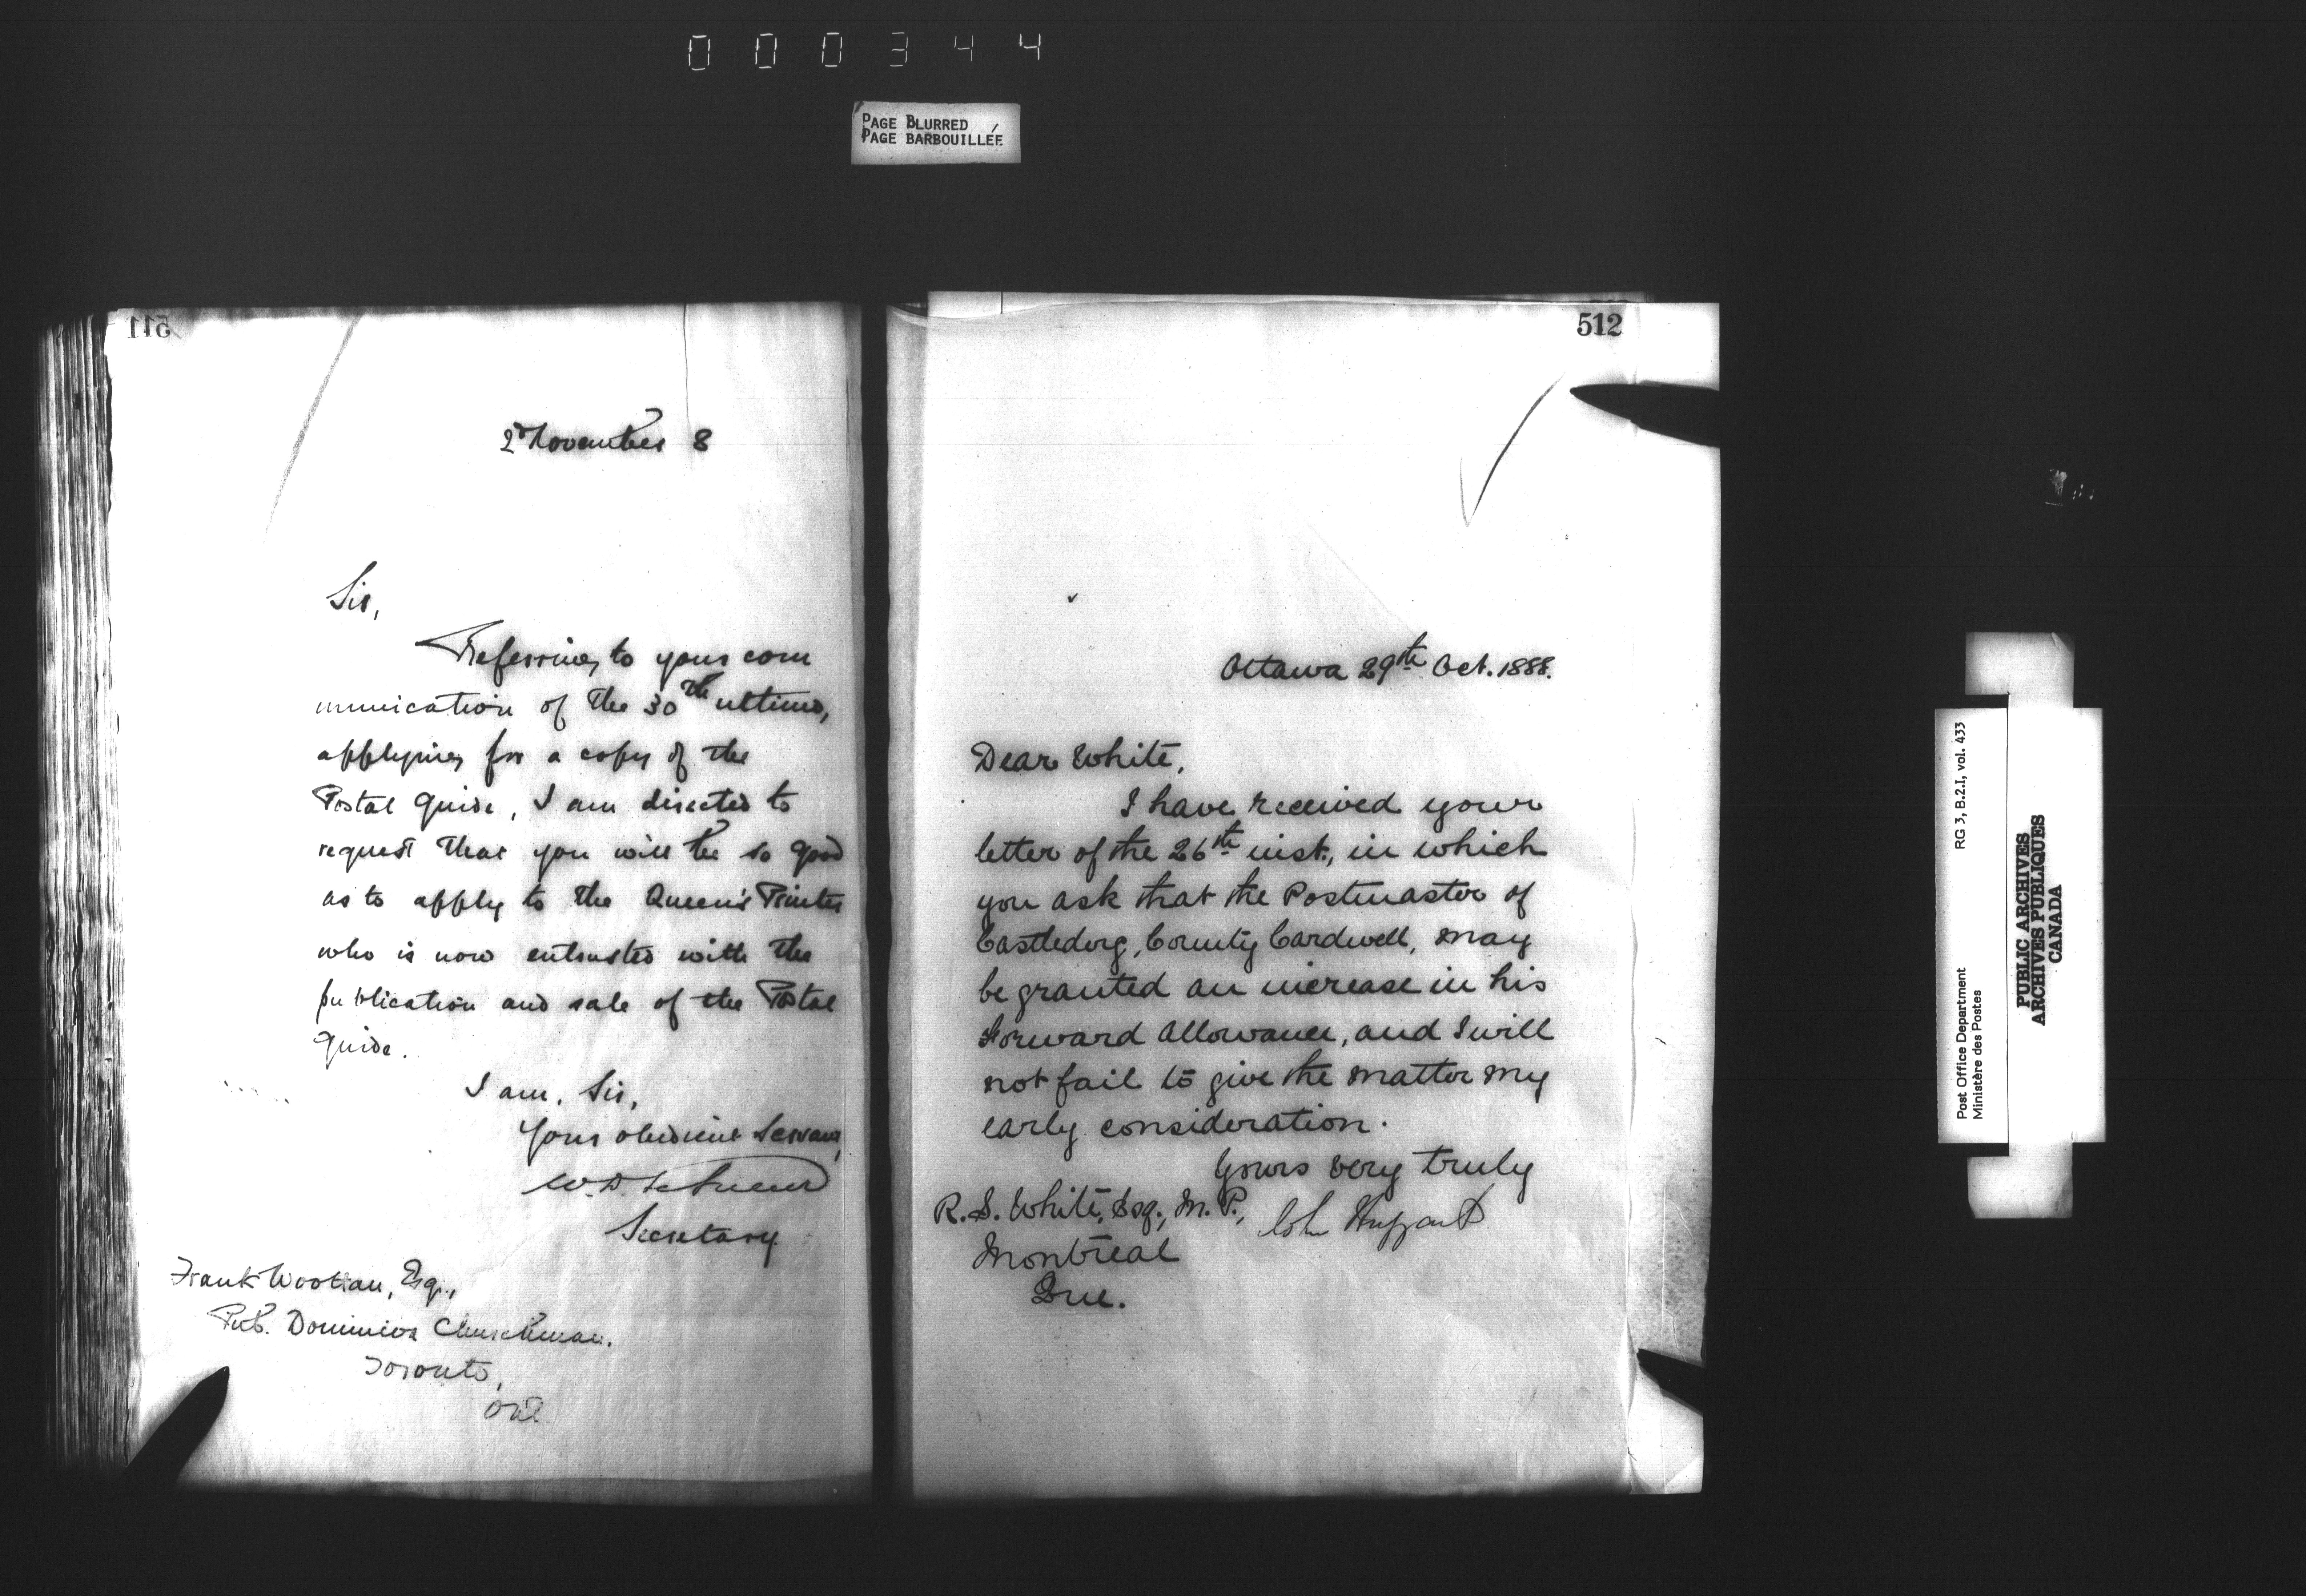 000344
PAGE BLURRED
PAGE BARBOUILLÉE
511
2d November 8
Sir,
Referring to your com
munication of the 30th ultimo,
applying for a copy of the
Postal Guide, I am directed to
request that you will be so good
as to apply to the Queen's Printer
who is now entrusted with the
publication and sale of the Postal
Guide.
I am, Sir,
Your obedient Servant,
W. D. LeSueur
Secretary
Frank Wootton, Esq.,
Pub. Dominion Churchman.
Toronto,
Ont
512
Ottawa 29th Oct. 1888.
Dear White,
I have received your
letter of the 26th inst., in which
you ask that the Postmaster of
Castlederg, County Cardwell, may
be granted an increase in his
Forward Allowance, and I will
not fail to give the matter my
early consideration.
Yours very truly
John Haggart
R. S. White, Esq., M. P.,
Montreal
Que.
RG 3, B.2.I, vol. 433
Post Office Department
Ministère des Postes
PUBLIC ARCHIVES
ARCHIVES PUBLIQUES
CANADA